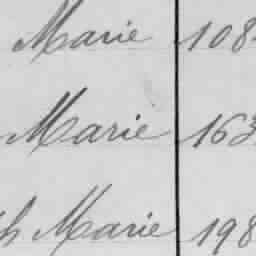 Marie 108
Marie 163
h Marie 198